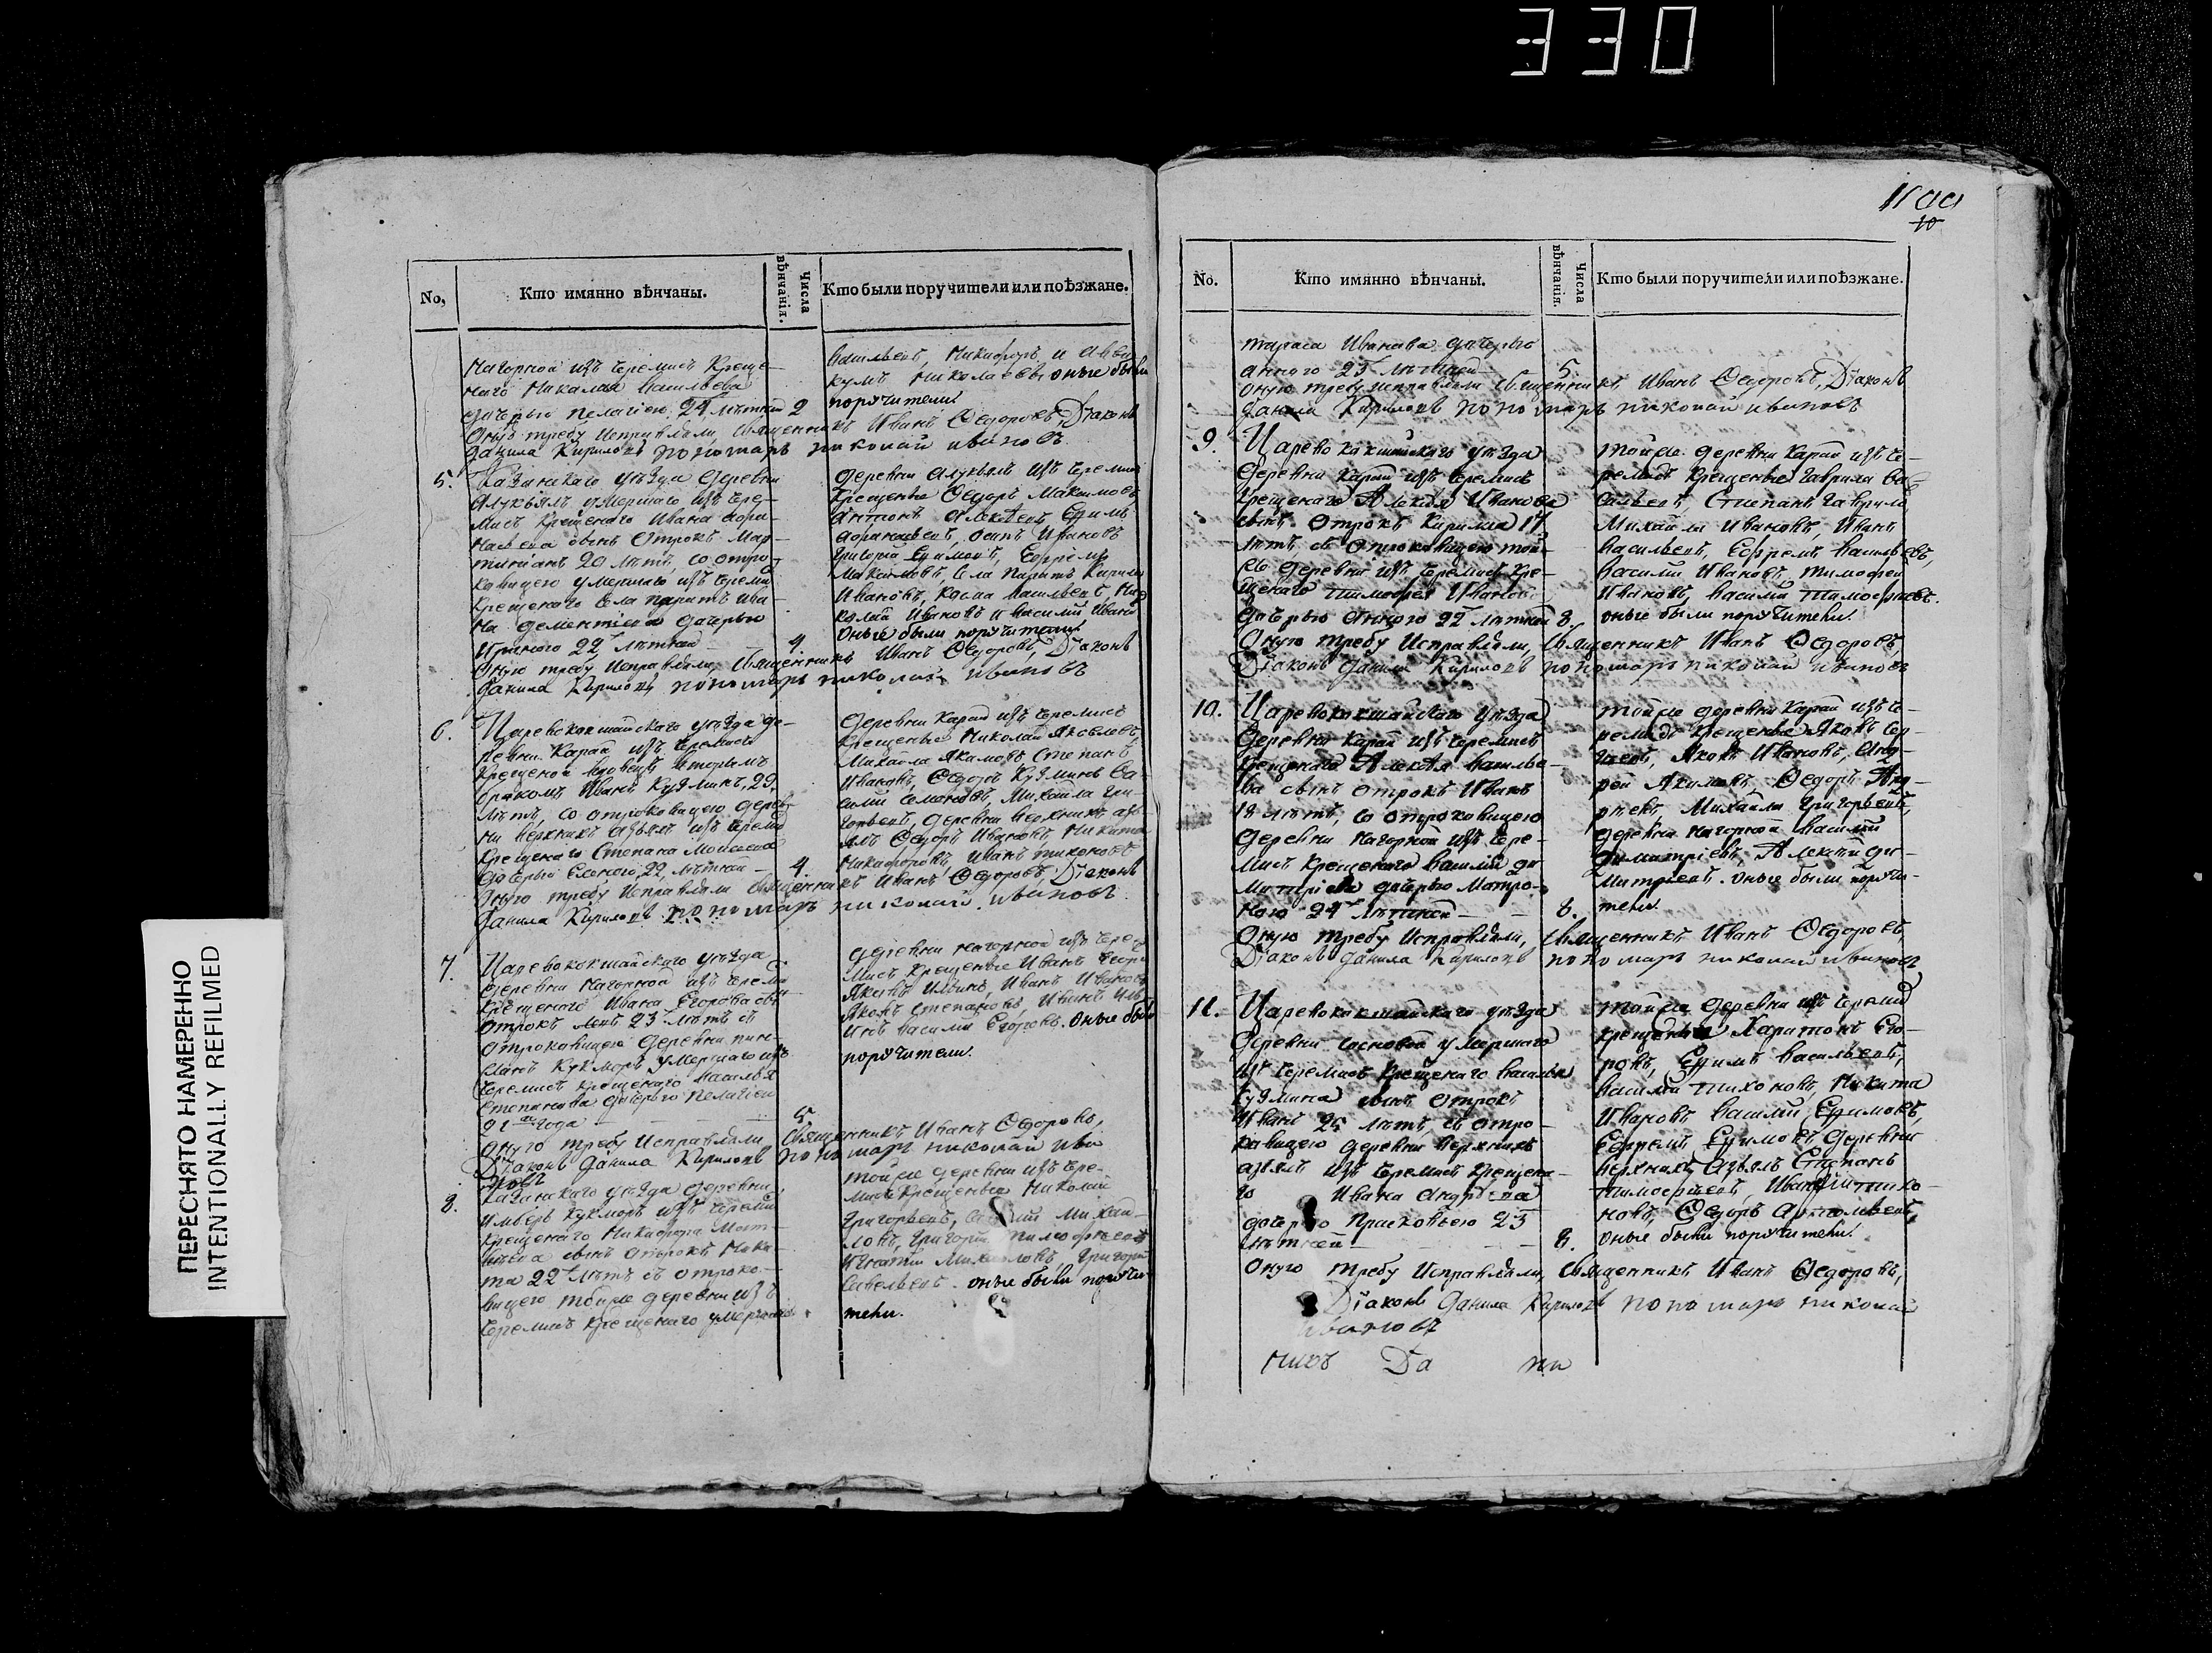 330
ПЕРЕСНЯТО НАМЕРЕННО
INTENTIONALLY REFILMED
No,
Кто имянно вѣнчаны.
Числа вѣнчанія.
Кто были поручители или поѣзжане.
Нагорной изъ черемисъ креще-
наго Николая Васильева
дочерью Пелагіею 24 лѣтней 2
Васильевъ, Никифоръ и
Николаевы оные были
поручители.
Оную требу исправляли священникъ Иванъ Ѳедоровъ, Діаконъ
Данила Кириловъ пономарь николай ивановъ
5. Казанскаго уѣзда деревни
умершаго изъ чере-
мисъ крещенаго Ивана
сынъ отрокъ Мар-
20 лѣтъ, со отро-
ковицею умершаго изъ череми
крещенаго села Паратъ Ива-
на Дементьева дочерью
22 лѣтней 4.
деревни изъ черемисъ
крещеные Ѳедоръ Максимовъ
Антонъ Алексѣевъ, Ефимъ
Осипъ Ивановъ
Григорій Ефимовъ, Ефремъ
Максимовъ, Села Паратъ Кирила
Ивановъ, Косма Васильевъ, Ни-
колай Ивановъ и Василій Ивано
оные были поручители.
Оную требу исправляли священникъ Иванъ Ѳедоровъ, Діаконъ
Данила Кириловъ пономарь николай ивановъ
6. Царевококшайскаго уѣзда де-
ревни Карай изъ черемисъ
крещеной вдовецъ вторымъ
бракомъ Иванъ Кузминъ, 29
лѣтъ, со отроковицею дерев-
ни верхнихъ Азъялъ изъ черемис
крещенаго Степана Моисеева
дочерью Еленою 22 лѣтней 4.
деревни Карай изъ черемисъ
крещеные Николай Яковлевъ,
Михайла Якимовъ Степанъ
Ивановъ, Ѳедоръ Кузминъ Ва-
силій Семеновъ, Михайла Гри-
горьевъ, деревни верхнихъ Азъ-
ялъ Ѳедоръ Ивановъ, Никита
Никифоровъ, Иванъ Тихоновъ
Оную требу исправляли священникъ Иванъ Ѳедоровъ, Діаконъ
Данила Кириловъ пономарь николай ивановъ
7. Царевококшайскаго уѣзда
деревни Нагорной изъ череми
крещенаго Ивана Егорова сынъ
отрокъ 23 лѣтъ съ
отроковицею деревни
Кукморъ умершаго изъ
черемисъ крещенаго Василья
Степанова дочерью Пелагіею
21 года
5.
деревни Нагорной изъ чере-
мисъ крещеные Иванъ
Яковъ Ильинъ, Иванъ Ивановъ
Яковъ Степановъ, Иванъ Иль-
инъ Василій Егоровъ. оные были
поручители.
Оную требу исправляли священникъ Иванъ Ѳедоровъ,
Діаконъ Данила Кириловъ пономарь николай ива
новъ
8. Казанскаго уѣзда деревни
Кукморъ изъ череми
крещенаго Никифора Мат-
вѣева сынъ отрокъ Ники-
та 22 лѣтъ съ отроко-
вицею тойже деревни изъ
черемисъ крещенаго умершаго
тойже деревни изъ чере-
мисъ крещеные Николай
Григорьевъ, Михай-
ловъ, Григорій Тимофѣевъ
Игнатій Михайловъ, Григорій
Савельевъ. оные были поручи-
тели.
1100
10
No.
Кто имянно вѣнчаны.
Числа вѣнчанія.
Кто были поручители или поѣзжане.
Тараса Иванова дочерью
Анною 23 лѣтней 5.
Оную требу исправляли священникъ Иванъ Ѳедоровъ, Діаконъ
Данила Кириловъ пономарь николай ивановъ
9. Царевококшайскаго уѣзда
деревни Карай изъ черемисъ
крещенаго Алексѣя Иванова
сынъ отрокъ Кирила 17
лѣтъ, съ отроковицею той-
же деревни изъ черемисъ кре-
щенаго Тимофея Иванова
дочерью Анною 22 лѣтней 8.
тойже деревни Карай изъ че-
ремисъ крещеные Гаврила Ва-
сильевъ, Степанъ Гаврило
Михайла Ивановъ, Иванъ
Васильевъ, Ефремъ Васильевъ,
Василій Ивановъ, Тимофей
Ивановъ, Василій Тимофеевъ.
оные были поручители.
Оную требу исправляли, священникъ Иванъ Ѳедоровъ,
Діаконъ Данила Кириловъ пономарь николай ивановъ
10. Царевококшайскаго уѣзда
деревни Карай изъ черемисъ
крещенаго Алексѣя Василье-
ва сынъ отрокъ Иванъ
18 лѣтъ, со отроковицею
деревни Нагорной изъ чере-
мисъ крещенаго Василія Ди-
митріева дочерью Матро-
ною 24 лѣтней 8.
тойже деревни Карай изъ че-
ремисъ крещеные Яковъ Сер-
гѣевъ, Яковъ Ивановъ, Анд-
рей Якимовъ Ѳедоръ Анд-
рѣевъ Михайла Григорьевъ,
деревни Нагорной Василій
Димитріевъ, Алексѣй Ди-
митріевъ. оные были поручи-
тели.
Оную требу исправляли, священникъ Иванъ Ѳедоровъ,
Діаконъ Данила Кириловъ пономарь николай ивановъ
11. Царевококшайскаго уѣзда
деревни Сосновой умершаго
изъ черемисъ крещенаго Василья
Кузмина сынъ отрокъ
Иванъ 25 лѣтъ, съ отро-
ковицею деревни верхнихъ
Азъялъ изъ черемисъ крещена-
го Ивана Андрѣева
дочерью Прасковьею 23
лѣтней 8.
тойже деревни изъ черемис
крещеные Харитонъ Его-
ровъ, Ефимъ Васильевъ,
Василій Тихоновъ, Никита
Ивановъ Василій Ефимовъ,
Ефремъ Ефимовъ деревни
верхнихъ Азъялъ Степанъ
Тимофѣевъ, Иванъ Тихо-
новъ, Ѳедоръ Артемьевъ,
оные были поручители.
Оную требу исправляли, священникъ Иванъ Ѳедоровъ,
Діаконъ Данила Кириловъ пономарь николай
ивановъ
никъ Да ни